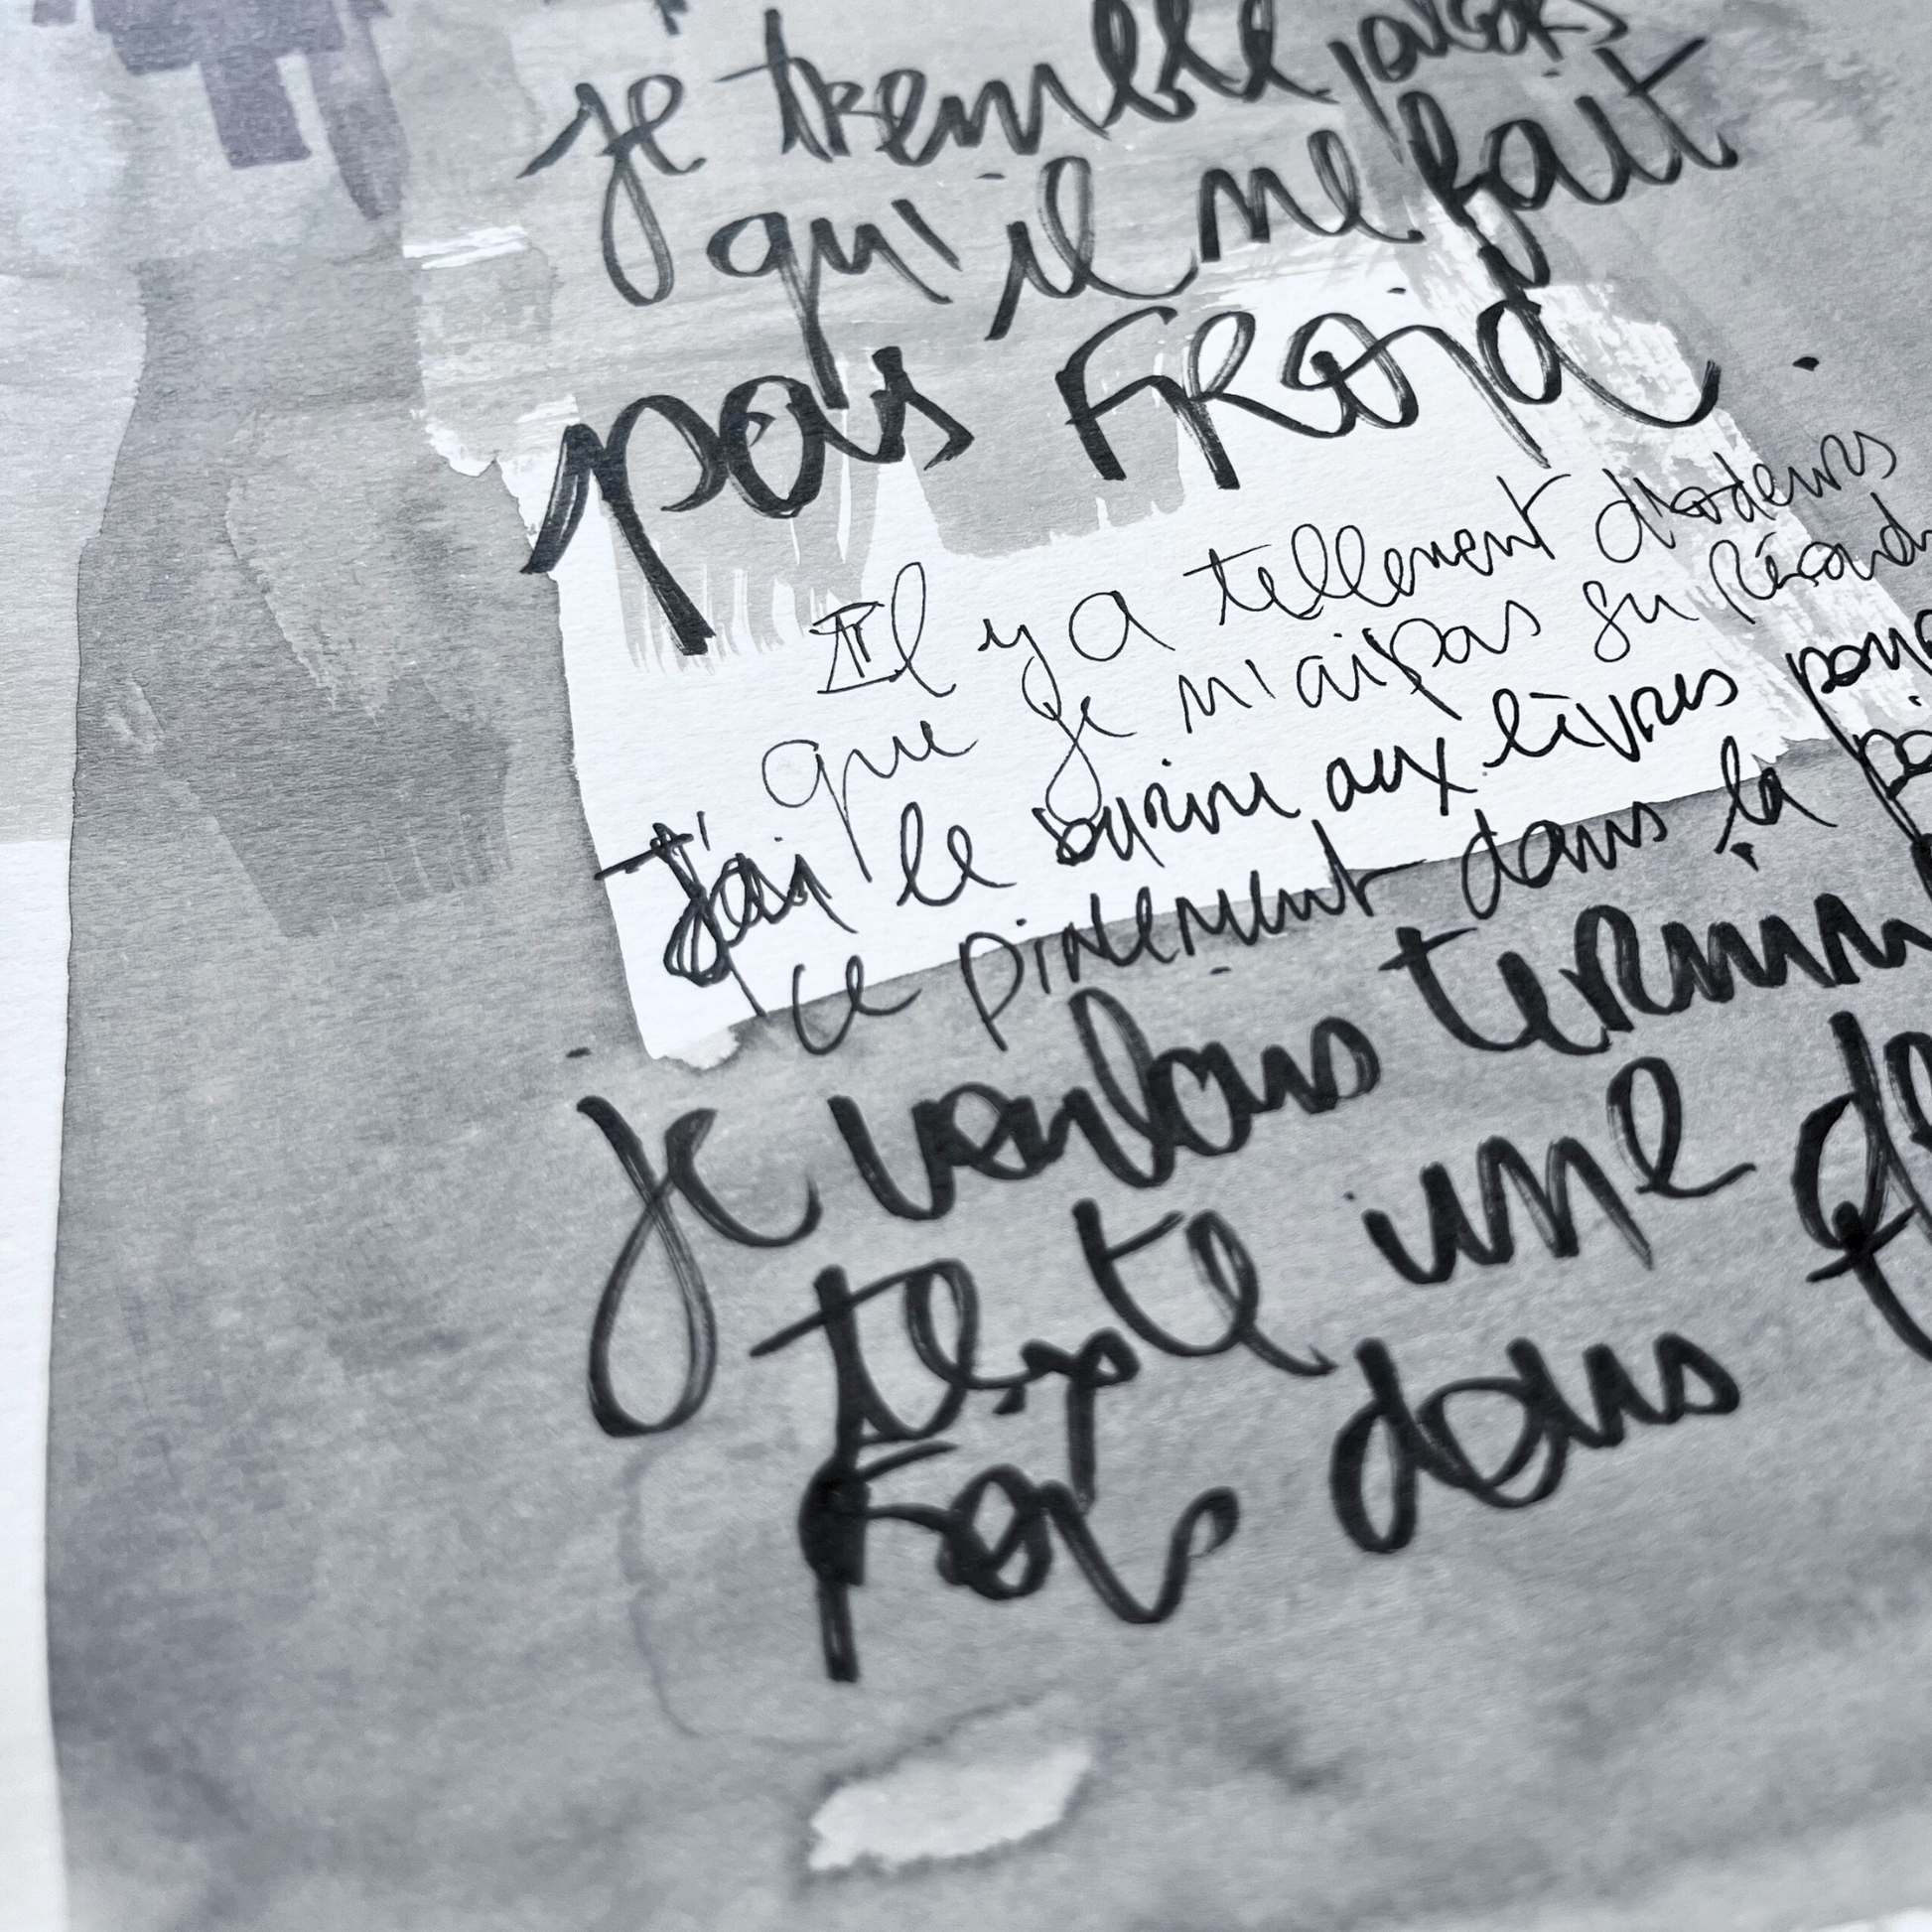 je tremble, alors
qu'il ne fait
pas FROid.
Il y a tellement d'odeurs
que je n'ai pas su
J'ai le sourire aux lèvres pour
ce pincement dans la
je voulais
texte une
fois dans